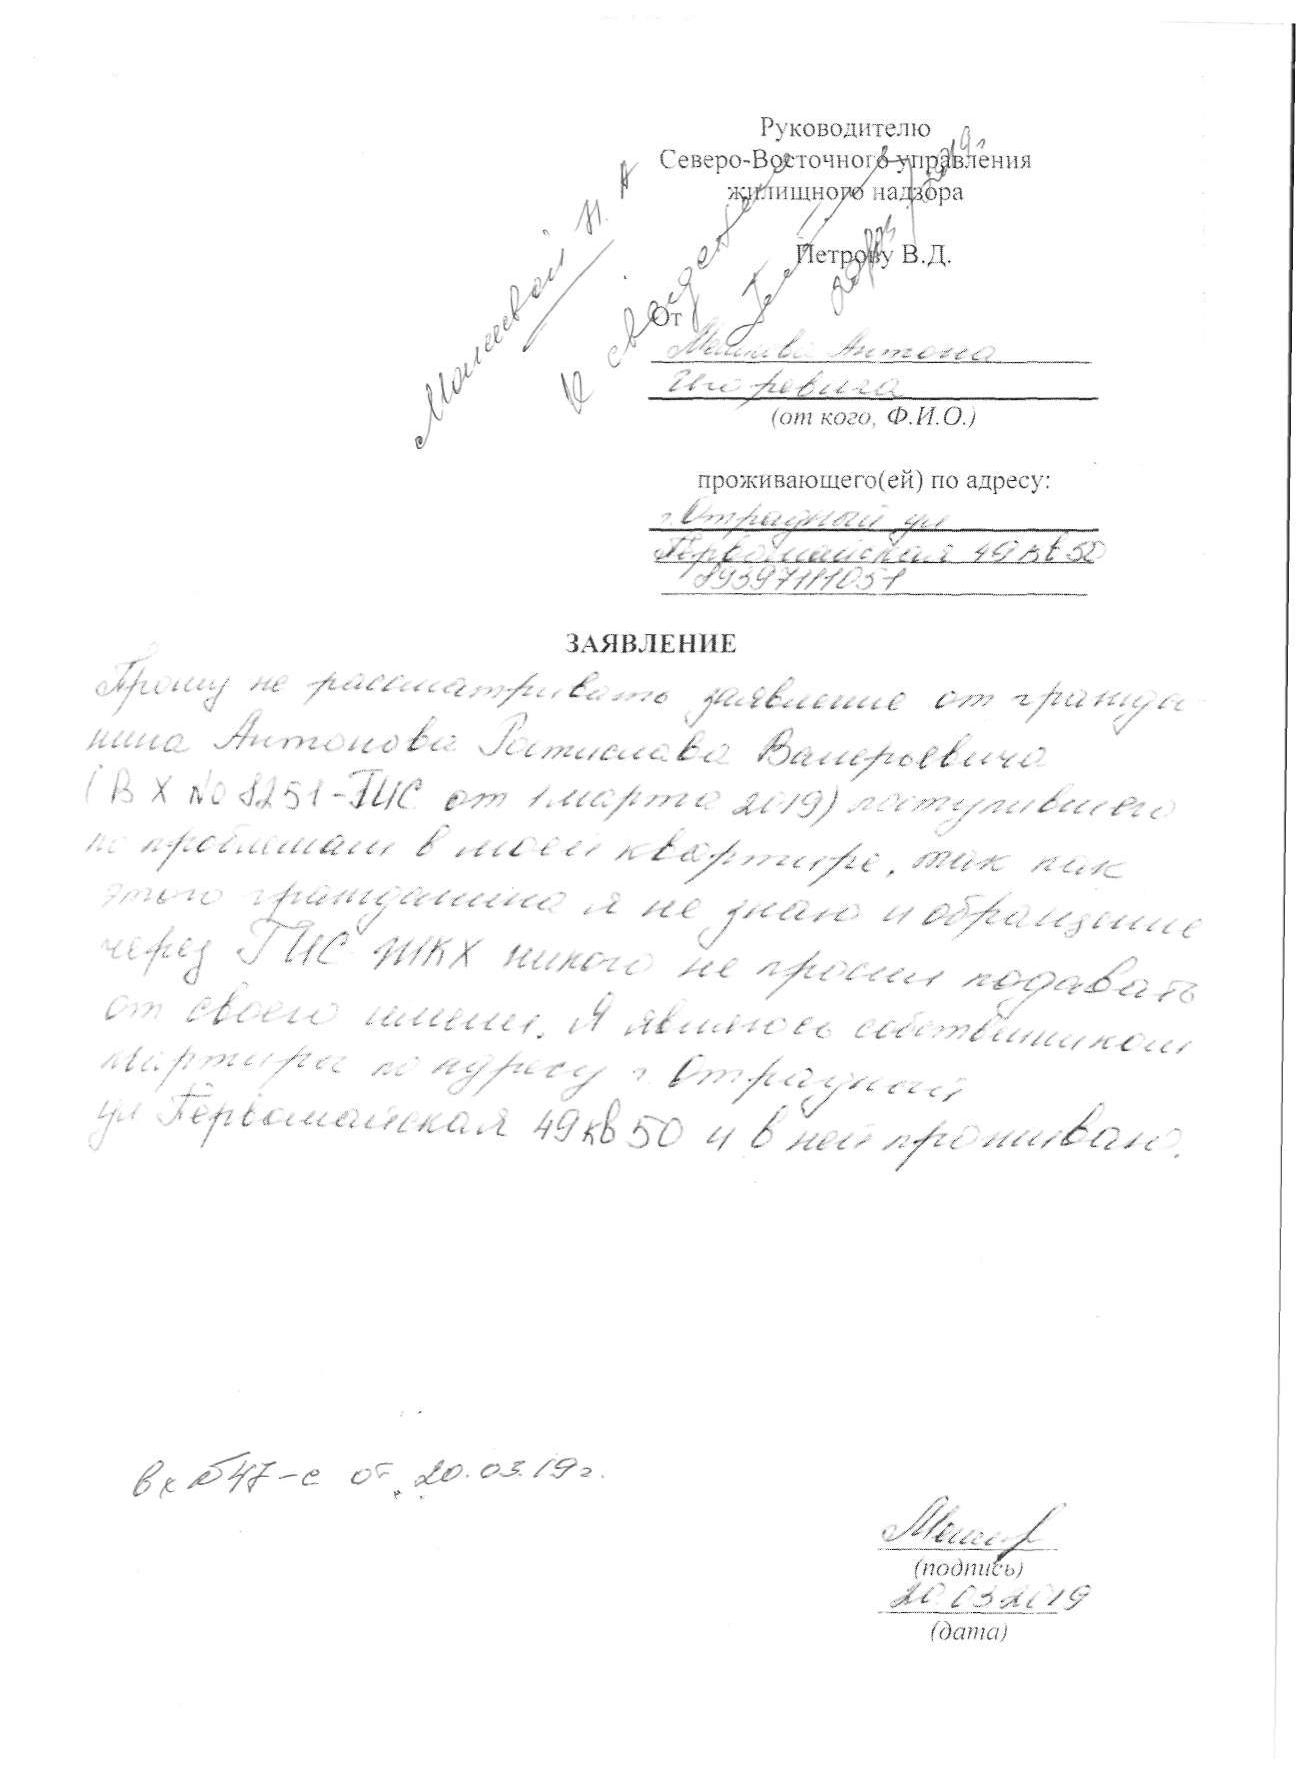 Руководителю
Северо-Восточного управления
жилищного надзора
Петрову В.Д.
Н. А
К сведению
От
Антона
Игоревича
(от кого, Ф.И.О.)
проживающего(ей) по адресу:
г.Отрадный ул
Первомайская 49 кв 50
89397111051
ЗАЯВЛЕНИЕ
Прошу не рассматривать заявление от гражда
нина Антонова Ратислава Валерьевича
(ВХ № 8251-ГИС от 1 марта 2019) поступившего
по проблемам в моей квартире, так как
этого гражданина я не знаю и обращение
через ГИС ЖКХ никого не просил подавать
от своего имени. Я являюсь собственником
квартиры по адресу г. Отрадный
ул Первомайская 49 кв 50 и в ней проживаю.
от 20.03.19г.
(подпись)
20.03.2019
(дата)